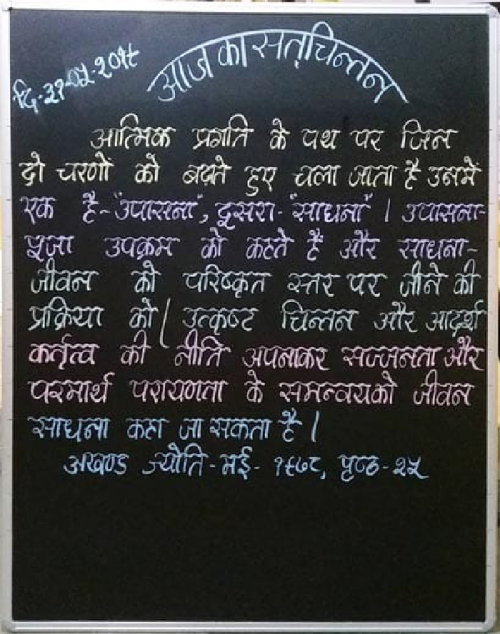 आज का सत्चिन्तन
दि-३१-०५-२०१८
आत्मिक प्रगति के पथ पर जिन
दो चरणों को बढ़ाते हुए चला जाता है उनमें
एक है-"उपासना", दूसरा-"साधना" । उपासना-
पूजा उपक्रम को कहते हैं और साधना-
जीवन को परिष्कृत स्तर पर जीने की
प्रक्रिया को । उत्कृष्ट चिन्तन और आदर्श
कर्तृत्व की नीति अपनाकर सज्जनता और
परमार्थ परायणता के समन्वय को जीवन
साधना कहा जा सकता है ।
अखण्ड ज्योति-मई-१९७८, पृष्ठ-२५